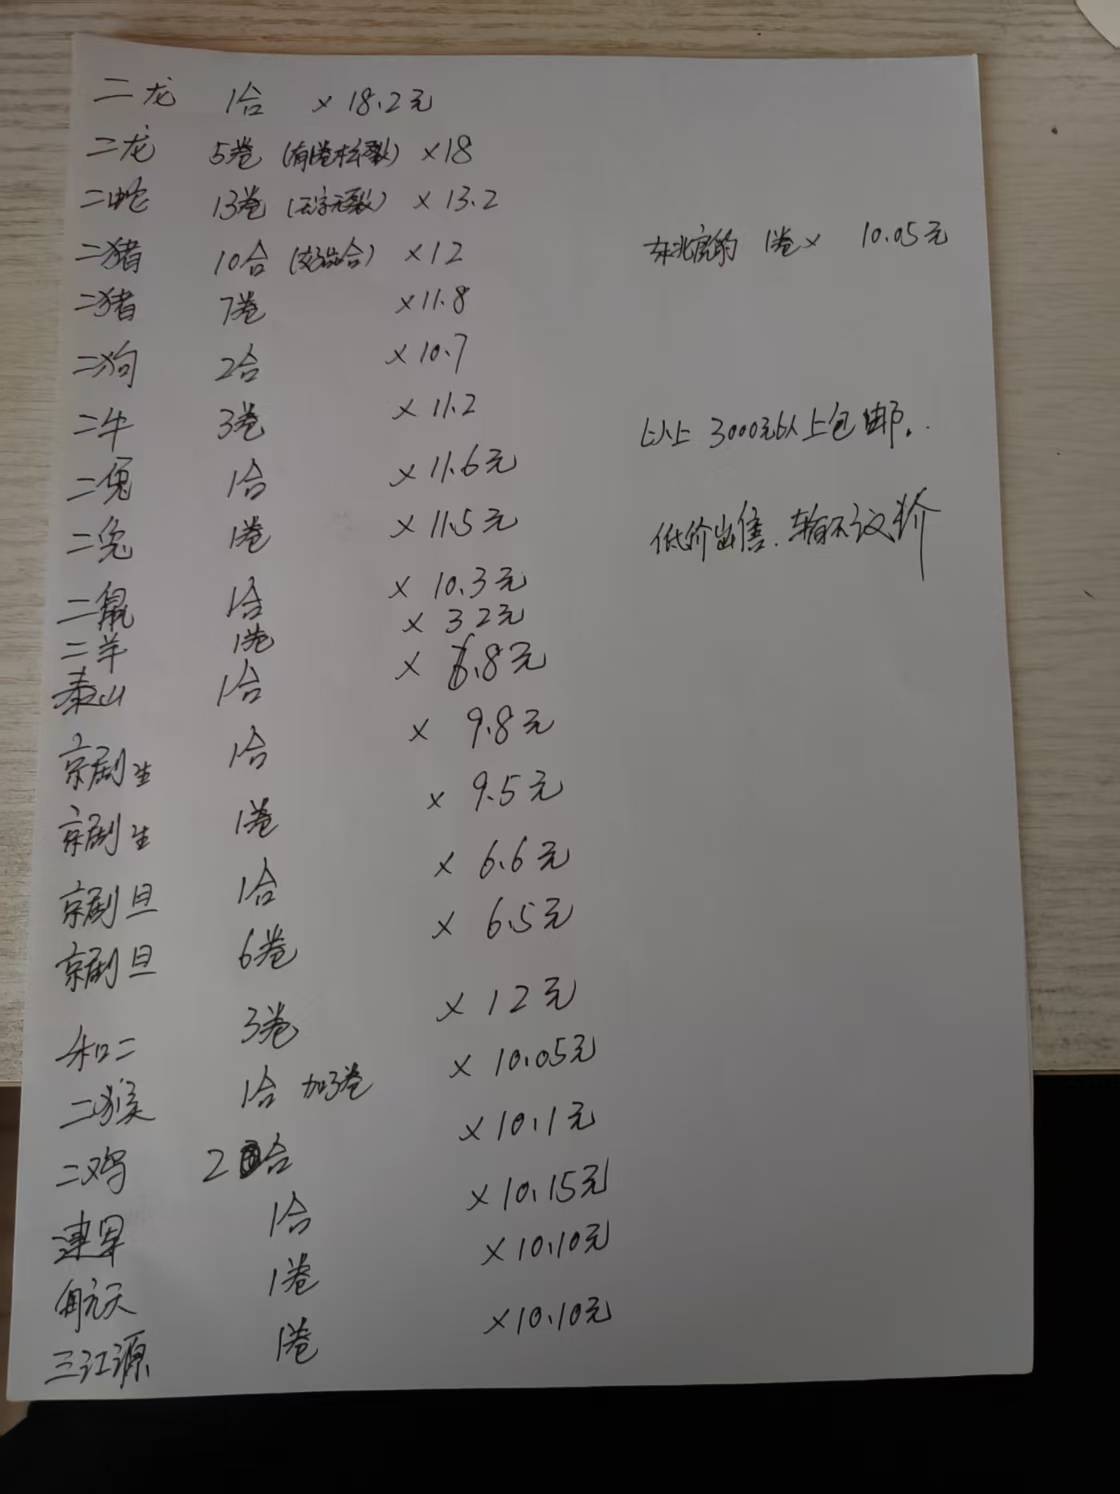 二龙 1合 × 18.2元
二龙 5卷 (有1卷松裂) ×18
二蛇 13卷 (无字无裂) × 13.2
二猪 10合 ×12
东北虎的 1卷× 10.05元
二猪 7卷 ×11.8
二狗 2合 ×10.7
二牛 3卷 ×11.2
以上3000元以上包邮.
二兔 1合 ×11.6元
二兔 1卷 ×11.5元
低价出售. 不议价
二鼠 1合 × 10.3元
二羊 1卷 × 32元
泰山 1合 × 6.8元
京剧生 1合 × 9.8元
京剧生 1卷 × 9.5元
京剧旦 1合 × 6.6元
京剧旦 6卷 × 6.5元
和二 3卷 ×12元
二猴 1合 加3卷 × 10.05元
二鸡 2合 ×10.1元
建军 1合 ×10.15元
航天 1卷 ×10.10元
三江源 1卷 ×10.10元